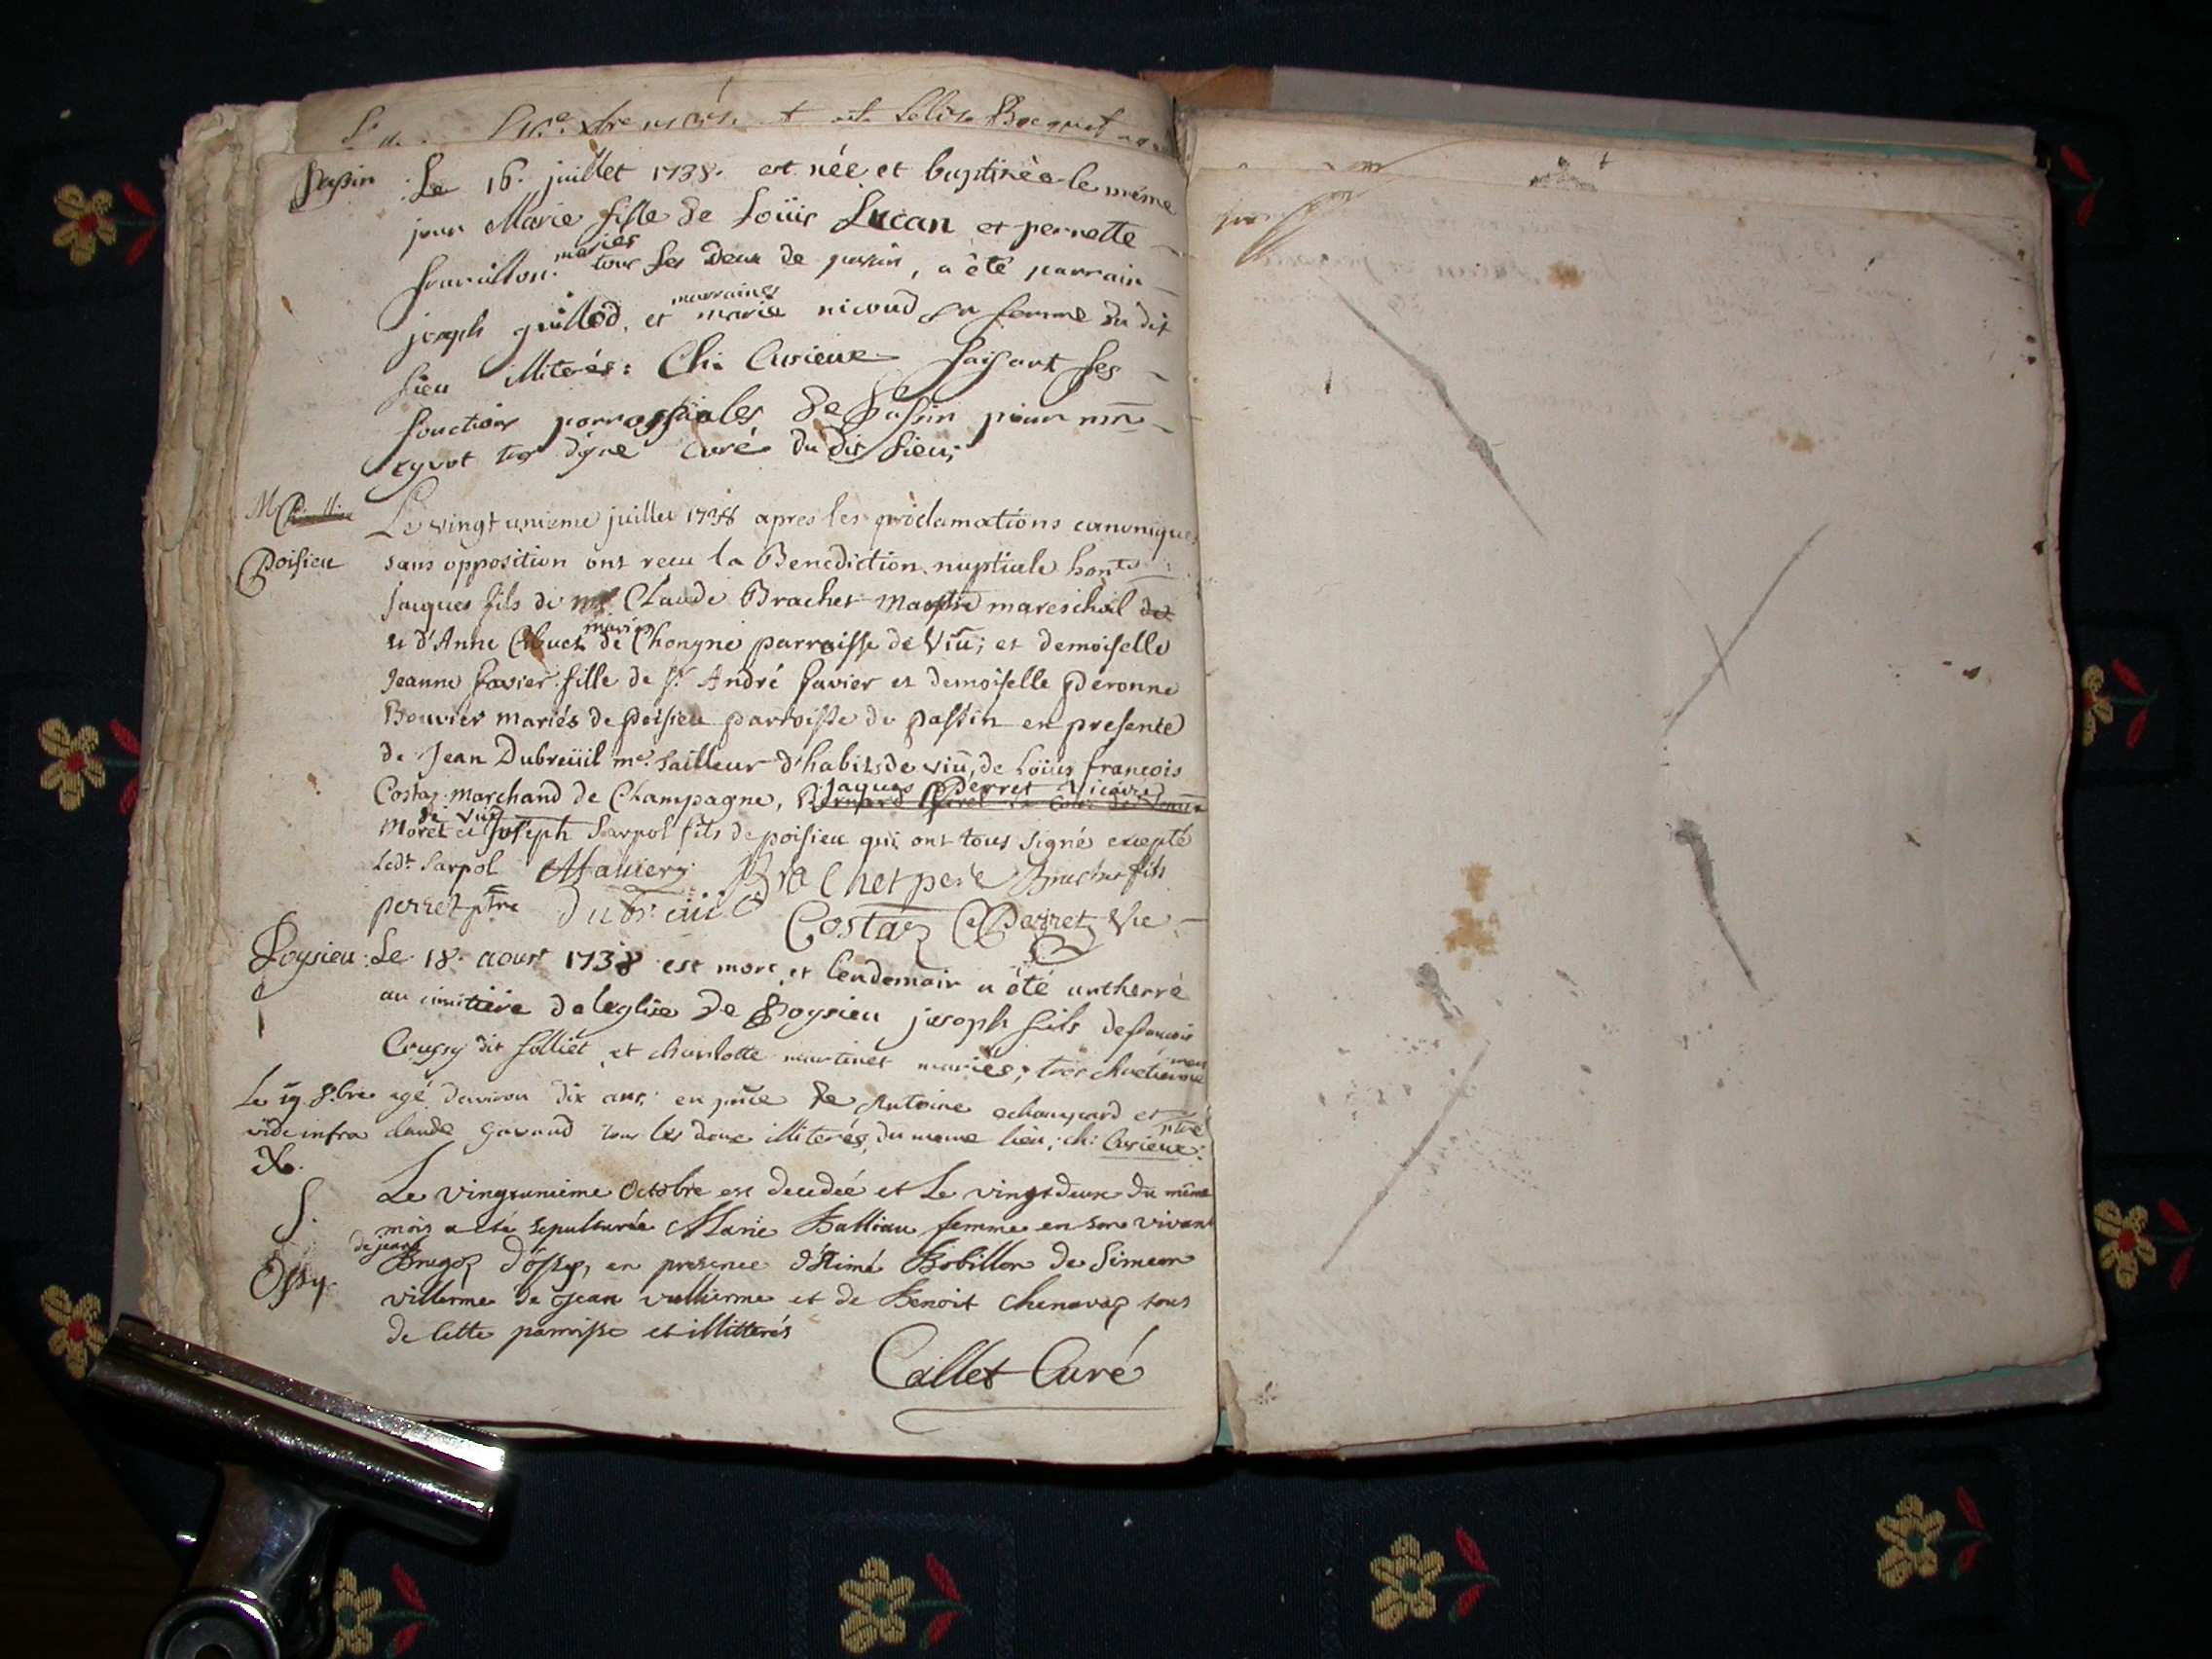 Passin Le 16. juillet 1738. est née et baptisée le même
jour Marie fille de Loüis Lucan et pernette
mariés
tous les deux de passin, a êté parrain
marraine
joseph guillod, et marie nicoud sa femme du dit
lieu illiterés: Ch: Curieux faisant les
fonctions parrossiales de Passin pour mr
tres digne Curé du dit lieu;
M
Le vingt unieme juillet 1738 apres les proclamations canoniques
Poisieu sans opposition ont receu la Benediction nuptiale honte
jacques fils de me Claude Brachet Maistre mareschal
mariés
et d'Anne de Chongne parroisse de Viü; et demoiselle
Jeanne favier fille de Sr André favier et demoiselle peronne
Bouvier mariés de poisieu parroisse de passin en presence
de Jean Dubreüil me. tailleur d'habits de viü, de Loüis francois
Jaques Perret Vicaire
Costaz marchand de Champagne,
de Viü
Moret et joseph Sarpol fils de poisieu qui ont tous signé excepté
ledt Sarpol Brachet pere Brachet fils
perret ptre Dubreüil Costaz Perret Vic
Poysieu Le 18. aoust 1738 est mort et lendemain a êté antherré
au cimitiere de leglise de Poysieu joseph fils de francois
dit folliet, et charlotte martinet mariés; tres chretienne
ment
Le 19 8.bre agé denviron dix ans; en pnce de Antoine et
ptre
vide infra claude gavaud tous les deux illiterés du meme lieu; ch: Curieux:
S. Le vingtunieme Octobre est decedée et Le vingtdeux du même
mois a eté sepulturée Marie Balliau femme en son vivant
de jean
Ossy d'ossy, en presence d'Aimé Bobillon de Simeon
villerme de Jean vullierme et de Benoit chenavaz tous
de cette parroisse et illitterés
Callet Curé